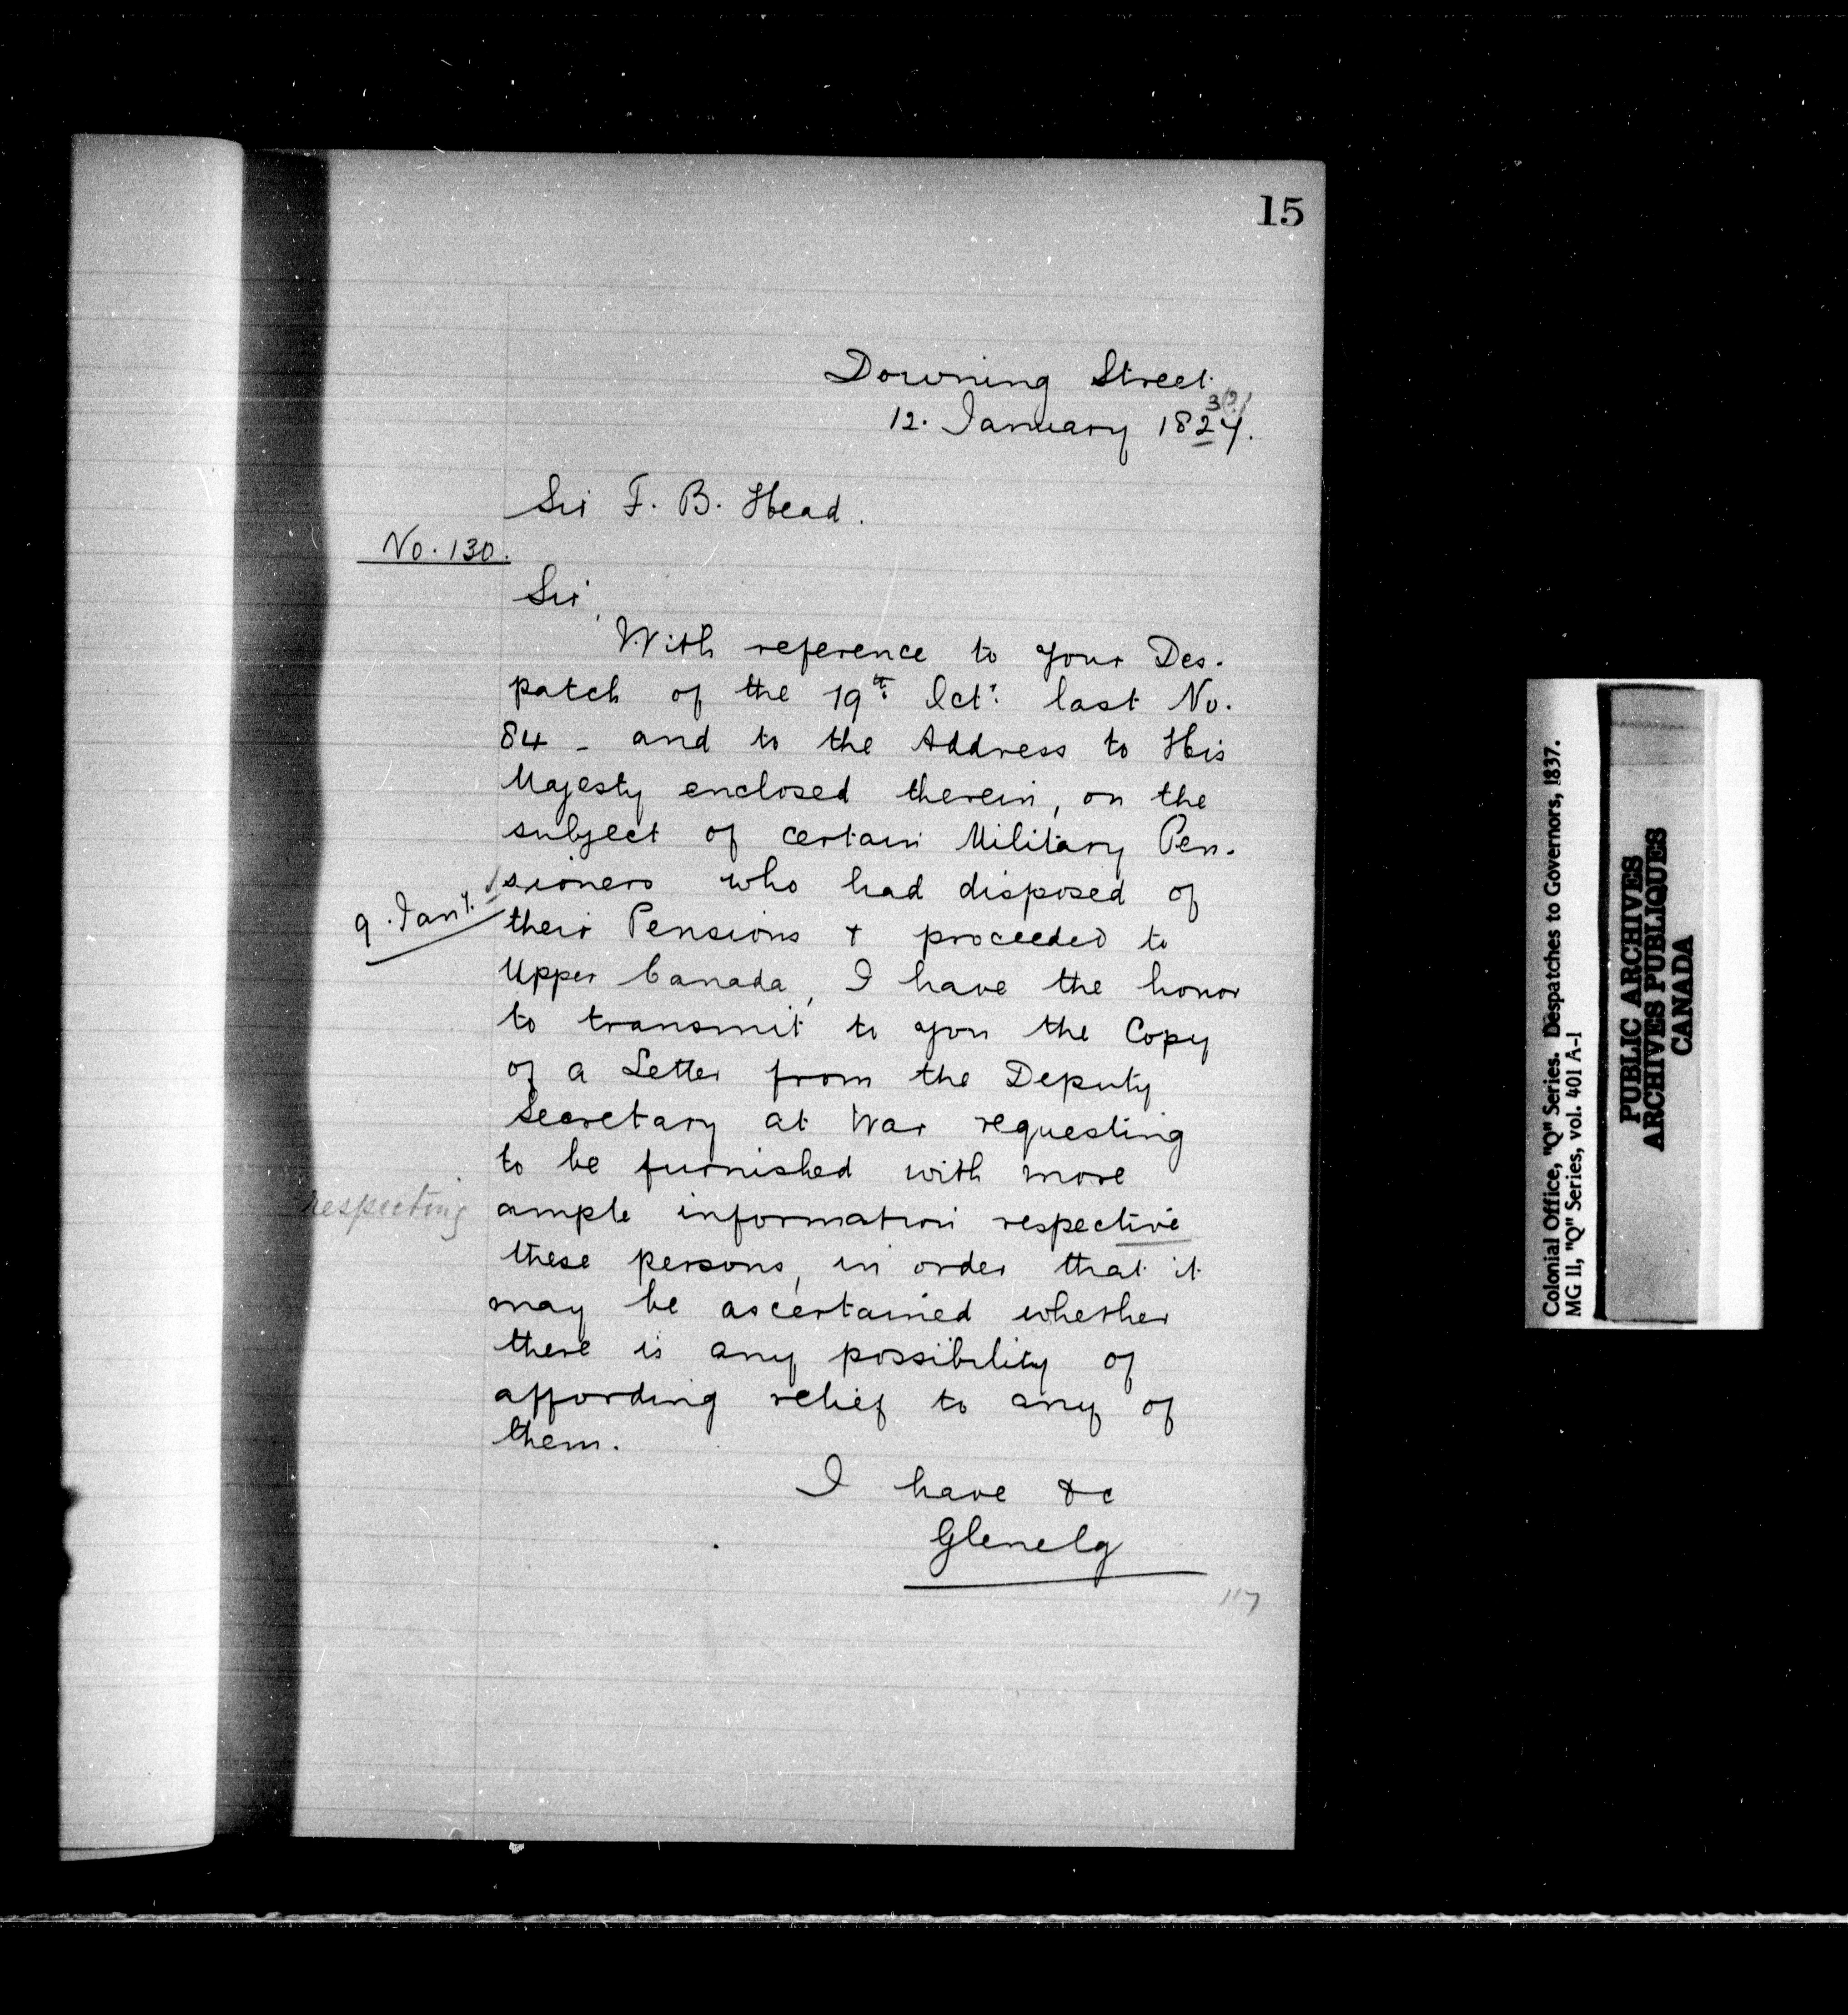 15
Downing Street
3(?)
12. January 1827.
Sir F. B. Head.
No. 130.
Sir,
With reference to your Des-
patch of the 19th Oct: last No.
84 - and to the Address to His
Majesty enclosed therein, on the
subject of certain Military Pen-
sioners who had disposed of
9. Jany.
their Pensions & proceeded to
Upper Canada, I have the honor
to transmit to you the Copy
of a Letter from the Deputy
Secretary at War requesting
to be furnished with more
respecting
ample information respective
these persons, in order that it
may be ascertained whether
there is any possibility of
affording relief to any of
them.
I have &c
Glenelg
117
Colonial Office, "Q" Series. Despatches to Governors, 1837.
MG 11, "Q" Series, vol. 401 A-1
PUBLIC ARCHIVES
ARCHIVES PUBLIQUES
CANADA